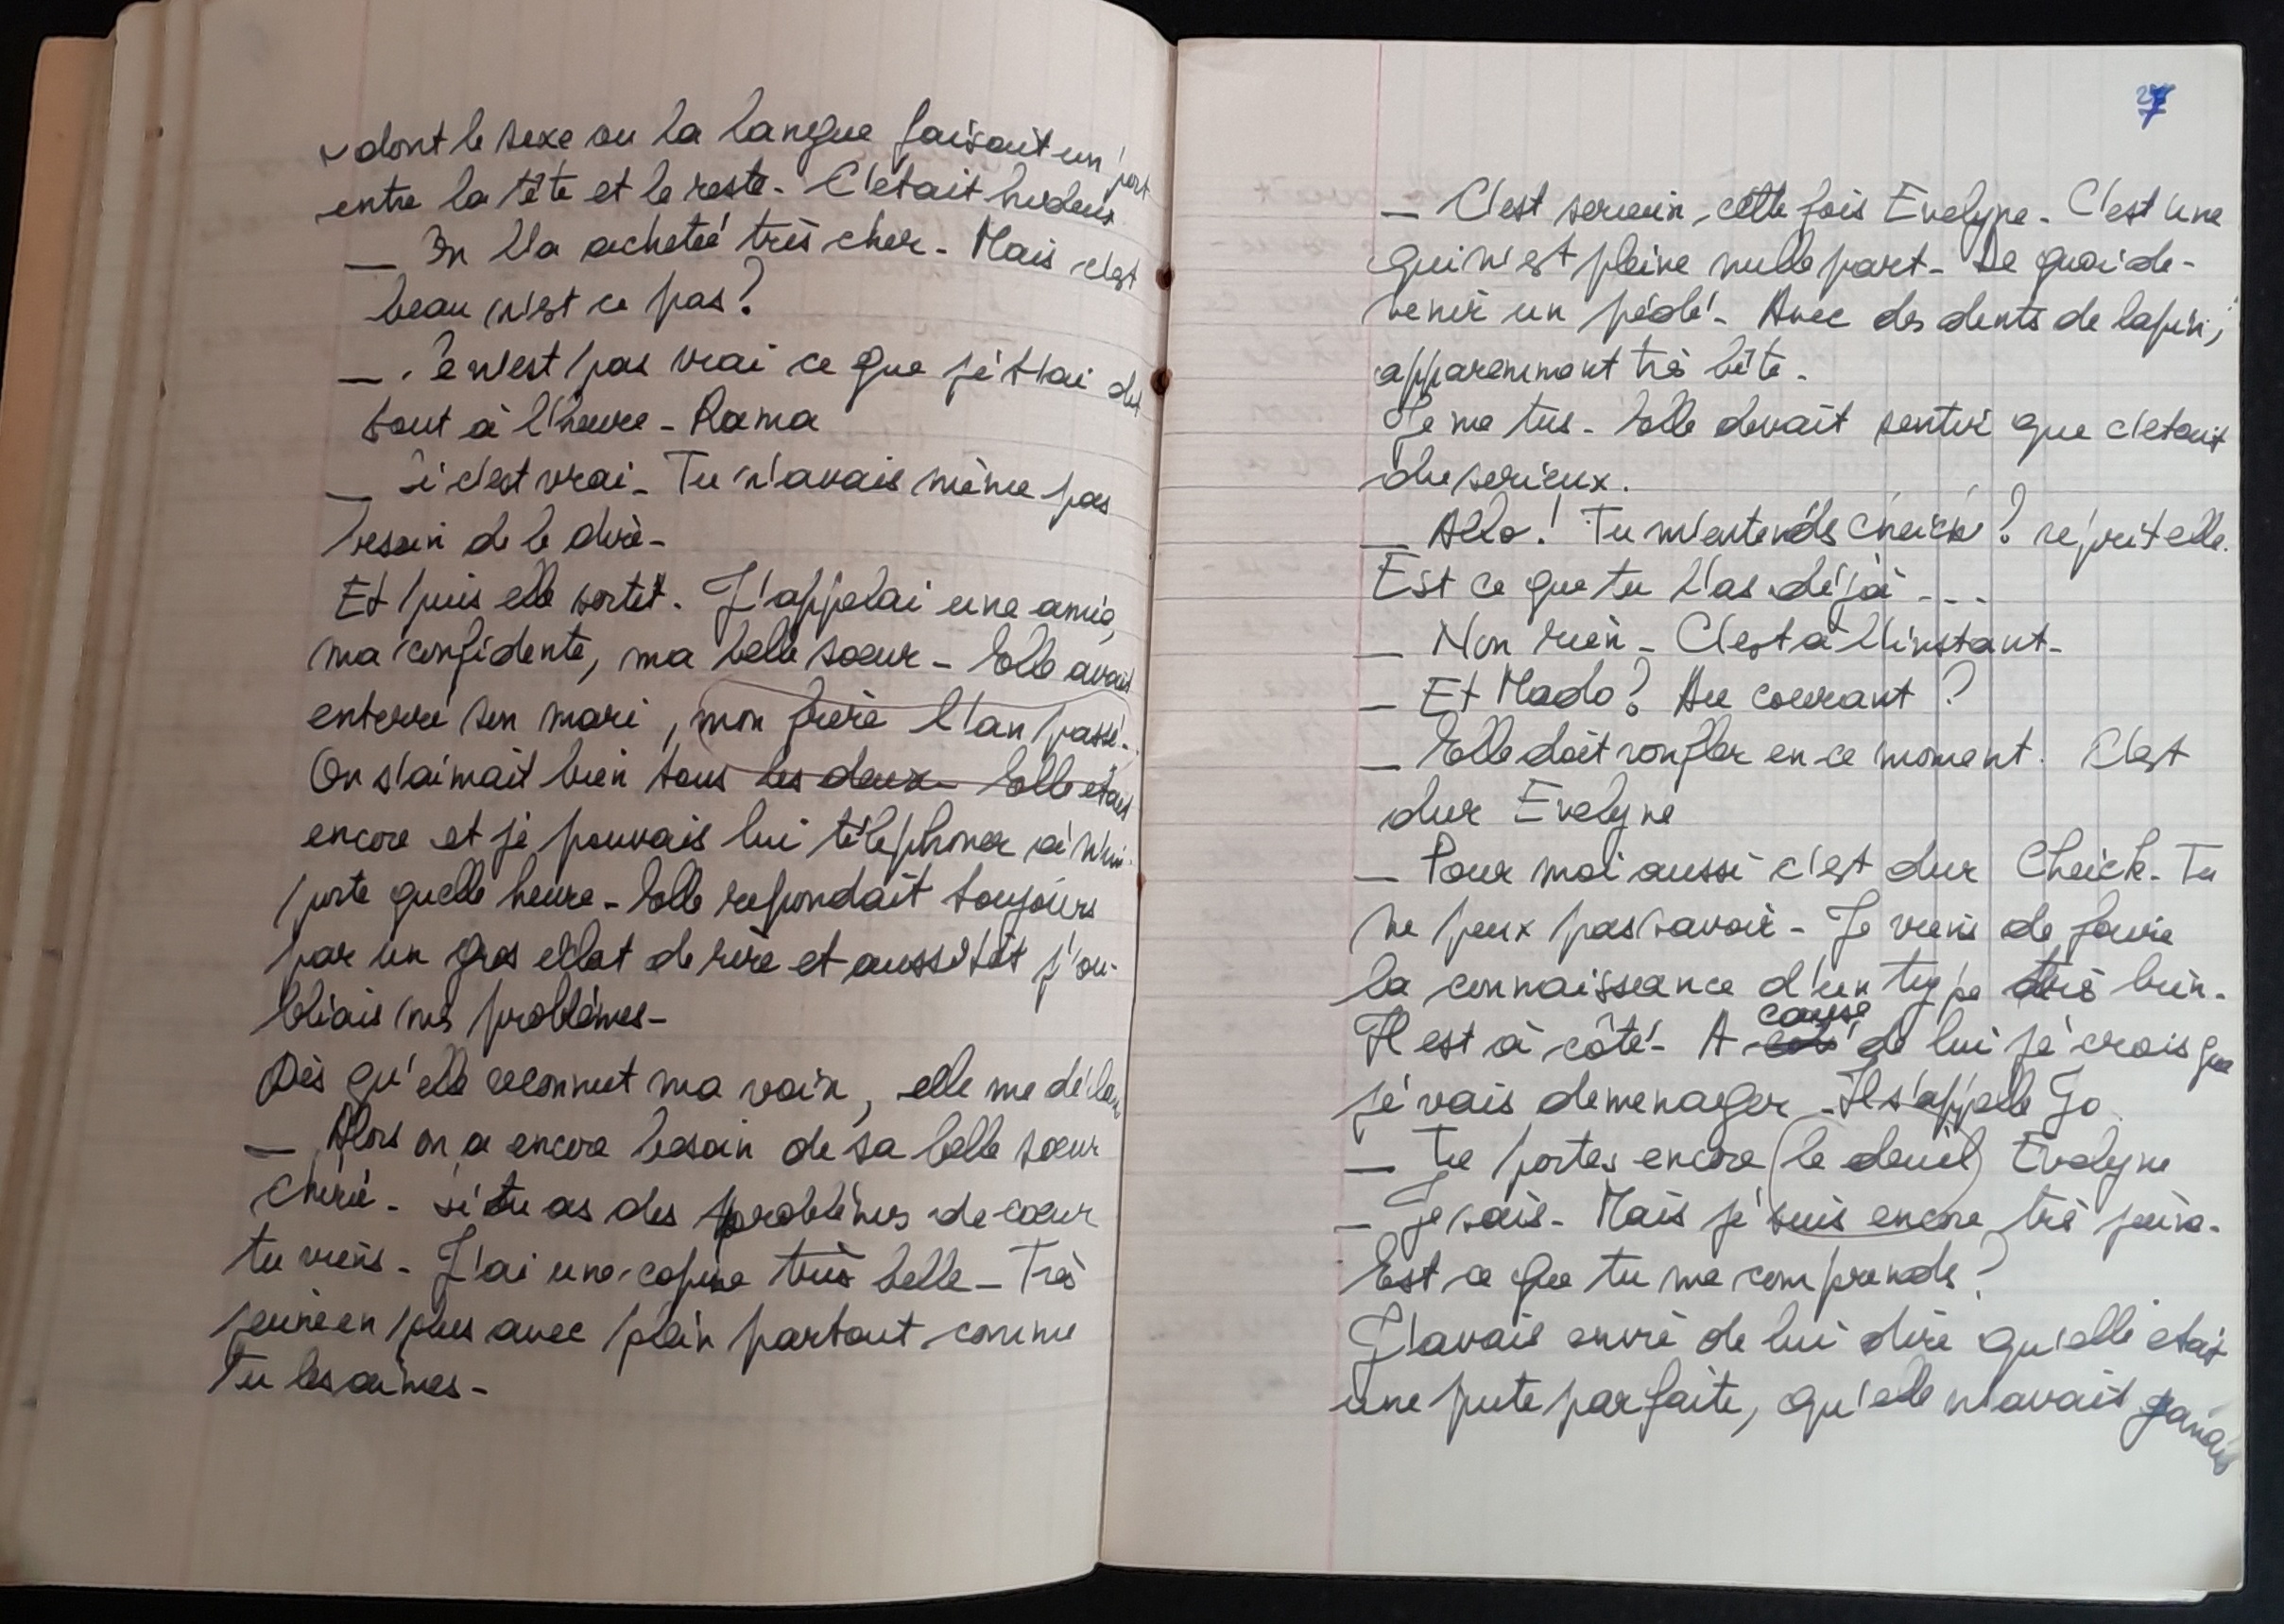 dont le sexe ou la langue faisait un pont
entre la tête et le reste - C'etait hideux
— On l'a acheté très cher - Mais c'est
beau n'est ce pas ?
— Ce n'est pas vrai ce que je t'ai dit
tout à l'heure - Rama
— Si c'est vrai - Tu n'avais même pas
besoin de le dire -
Et puis elle sortit. J'appelai une amie,
ma confidente, ma belle soeur - Elle avait
enterré son mari, mon frère l'an passé -
On s'aimait bien tous les deux - Elle etait
encore et je pouvais lui téléphoner à n'im-
porte quelle heure - Elle repondait toujours
par un gros eclat de rire et aussitôt j'ou-
bliais mes problèmes -
Dès qu'elle reconnut ma voix, elle me déclara
— Alors on a encore besoin de sa belle soeur
chérie - Si tu as des problèmes de coeur
tu viens - J'ai une copine très belle - Très
jeune en plus avec plein partout comme
Tu les aimes -
27
— C'est serieux cette fois Evelyne - C'est une
qui n'est pleine nulle part - De quoi de-
venir un pédé - Avec des dents de lapin,
apparemment très bête -
Je me tus - Elle devait sentir que c'etait
du serieux.
— Allo ! Tu m'entends Cheick ? reprit elle.
Est ce que tu l'as déjà ...
— Non rien - C'est à l'instant -
— Et Mado ? Au courant ?
— Elle doit ronfler en ce moment. C'est
dur Evelyne
— Pour moi aussi c'est dur Cheick - Tu
ne peux pas savoir - Je viens de faire
la connaissance d'un type très bien -
Il est à côté - A cause de lui je crois que
je vais demenager - Il s'appelle Jo
— Tu portes encore (le deuil) Evelyne
— Je sais - Mais je suis encore très jeune -
Est ce que tu me comprends ?
J'avais envie de lui dire qu'elle etait
une pute parfaite, qu'elle n'avait jamais